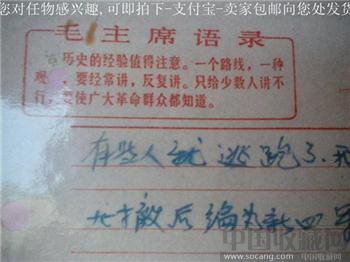 您对任物感兴趣,可即拍下-支付宝-卖家包邮向您处发货
毛主席语录
历史的经验值得注意。一个路线，一种
观点，要经常讲，反复讲。只给少数人讲不
行，要使广大革命群众都知道。
有些人就逃跑了.
北撤后编为新四
中国收藏网
www.socang.com
中国收藏网